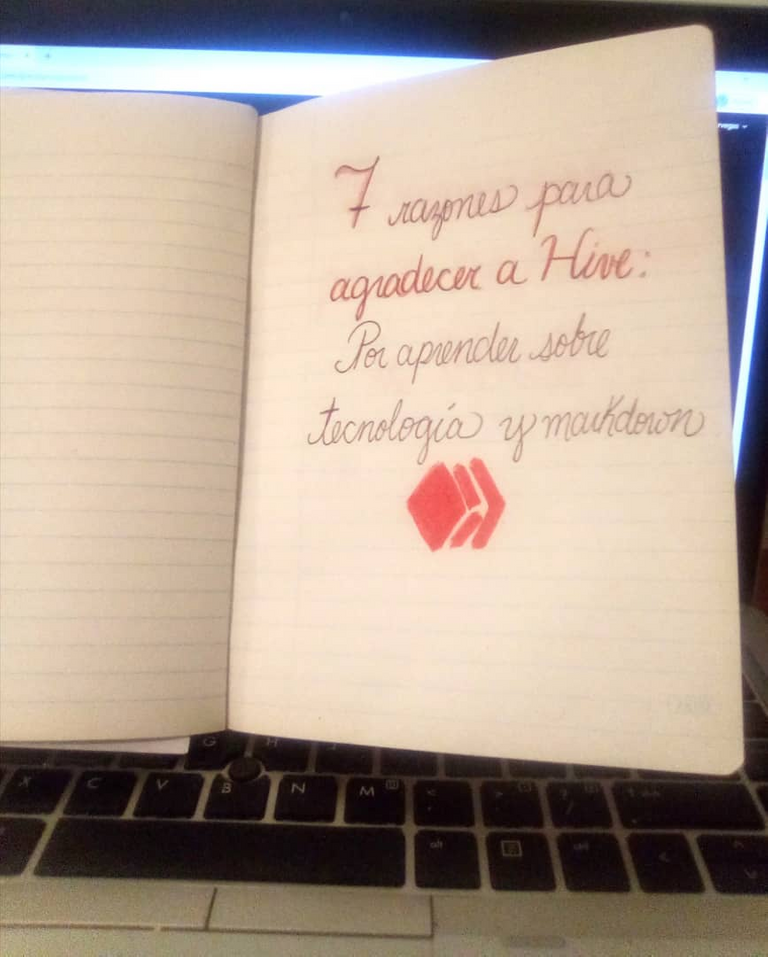 7 razones para
agradecer a Hive:
Por aprender sobre
tecnología y markdown
G H
X C V B N M
alt